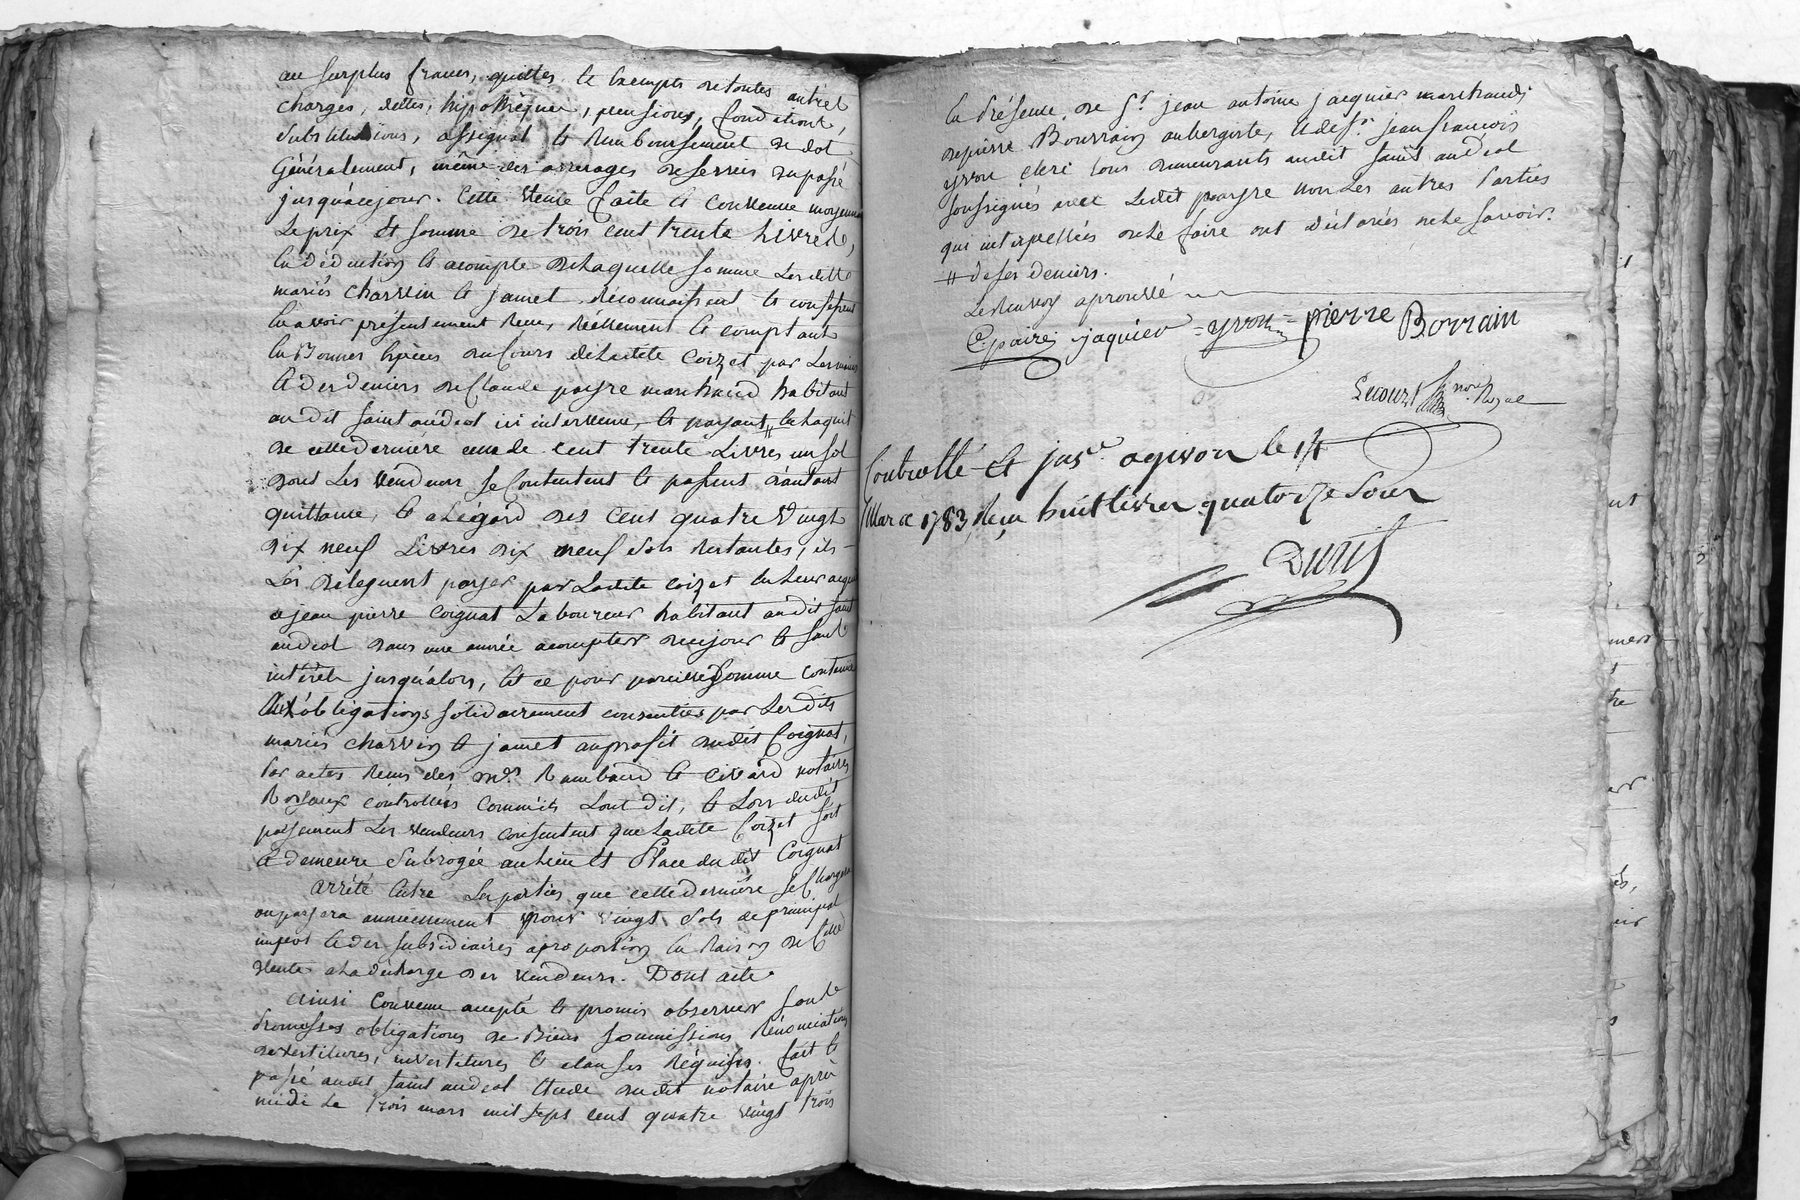 au surplus francs, quittes et Exempts de toutes autres
charges, dettes, hipothèques, pensions, fondations,
Substitutions, assignat et Remboursement de dot
Généralement, même des arrerages de servis du passé
jusqu'àcejour. Cette Vente faite et convenue moyennant
Le prix et somme de trois cent trente Livres,
En déduction et acompte de laquelle somme Lesdits
mariés Charvin et jamet reconnaissent et confessent
En avoir présentement Reçu Réellement et comptant
En Bonnes Espèces du Cours de Ladite Coizet par Les mains
Et des deniers de Claude payre marchand habitant
audit saint andeol ici intervenu, et payant # à l'aquit
de cette dernière celle de cent trente Livres un sol
dont Les Vendeurs se Contentent et passent d'autant
quittance, et a L'égard des Cent quatre Vingt
dix neuf Livres dix neuf sols Restantes, ils
Les deleguent payer par Ladite Coizet En Leur aquit
a jean pierre Coignat Laboureur habitant audit saint
andeol dans une année acompter de cejour et sans
intérêt jusqu'alors, et ce pour pareille Somme contenue
Aux obligations solidairement consenties par Lesdits
mariés charvin et jamet auprofit dudit Coignat,
Par actes Reçus des mes Rambaud et Civard notaires
Royaux contrôllées Comme ils L'ont dit, et Lors dudit
payement Les vendeurs consentent que Ladite Coizet soit
et demeure Subrogée au lieu et Place dudit Coignat
arrêté Entre Les parties que cette dernière se Chargera
ou payera annuellement pour vingt sols de principal
impôt et des subsidiaires a proportion En Raison de Cette
Vente a La décharge des vendeurs. Dont acte
Ainsi Convenu accepté et promis observer sous les
Promesses obligations de Biens soumissions Rénonciations
devestitures, investitures et clauses Réquises. fait et
passé audit saint andeol Etude dudit notaire après
midi Le trois mars mil sept cent quatre vingt trois
En Présence de Sr. jean antoine jacquier marchand
de pierre Bourrain aubergiste, et de sr. jean françois
yvon clerc tous demeurants audit saint andeol
soussignés avec Ledit payre non Les autres Parties
qui interpellées de Le faire ont déclarés ne Le savoir.
# de ses deniers.
Le Renvoy aprouvé
C. paire jaquier yvon pierre Borrain
Lecourt Nore Royal
Controllé et ins. agivors le 14
Mars 1783, Reçu huit livres quatorze sous